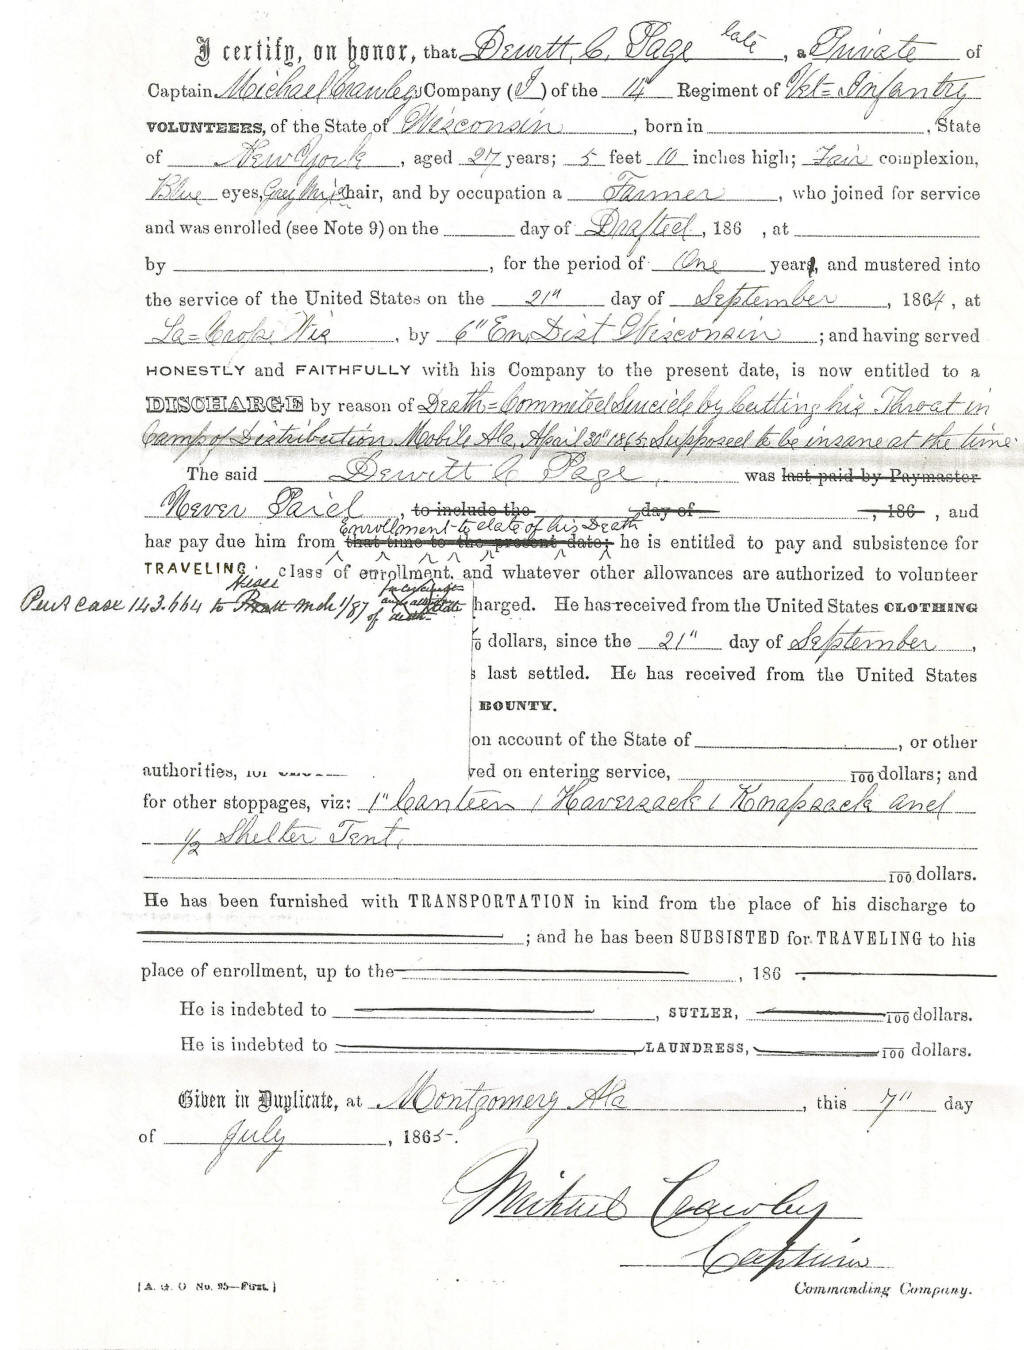 I certify, on honor, that Dewitt, C. Page late, a Private of
Captain Michael Crawley's Company (I) of the 14" Regiment of Vet= Infantry
VOLUNTEERS, of the State of Wisconsin, born in , State
of New York, aged 27 years; 5 feet 10 inches high; Fair complexion,
Blue eyes, Grey hair, and by occupation a Farmer, who joined for service
and was enrolled (see Note 9) on the day of Drafted, 186 , at
by , for the period of One year, and mustered into
the service of the United States on the 21" day of September, 1864, at
La=Crosse Wis, by 6" En Dist Wisconsin; and having served
HONESTLY and FAITHFULLY with his Company to the present date, is now entitled to a
DISCHARGE by reason of Death=Commited Suicide by Cutting his Throat in
Camp of Distribution Mobile Ala, April 30" 1865, Supposed to be insane at the time.
The said Dewitt C Page, was last paid by Paymaster
Never Paid, to include the day of , 186 , and
Enrollment to date of his Death
has pay due him from that time to the present date; he is entitled to pay and subsistence for
TRAVELING class of enrollment, and whatever other allowances are authorized to volunteer
Pens case 143.664 to Mch 1/87 of death harged. He has received from the United States CLOTHING
dollars, since the 21" day of September,
last settled. He has received from the United States
BOUNTY.
on account of the State of , or other
authorities, ved on entering service, 100 dollars; and
for other stoppages, viz: 1" Canteen 1 Haversack 1 Knapsack and
1/2 Shelter Tent,
100 dollars.
He has been furnished with TRANSPORTATION in kind from the place of his discharge to
; and he has been SUBSISTED for TRAVELING to his
place of enrollment, up to the , 186 .
He is indebted to , SUTLER, 100 dollars.
He is indebted to , LAUNDRESS, 100 dollars.
Given in Duplicate, at Montgomery Ala, this 7" day
of July, 1865.
Michael Crawley
Captain
[A. G. O No. 95—First.] Commanding Company.